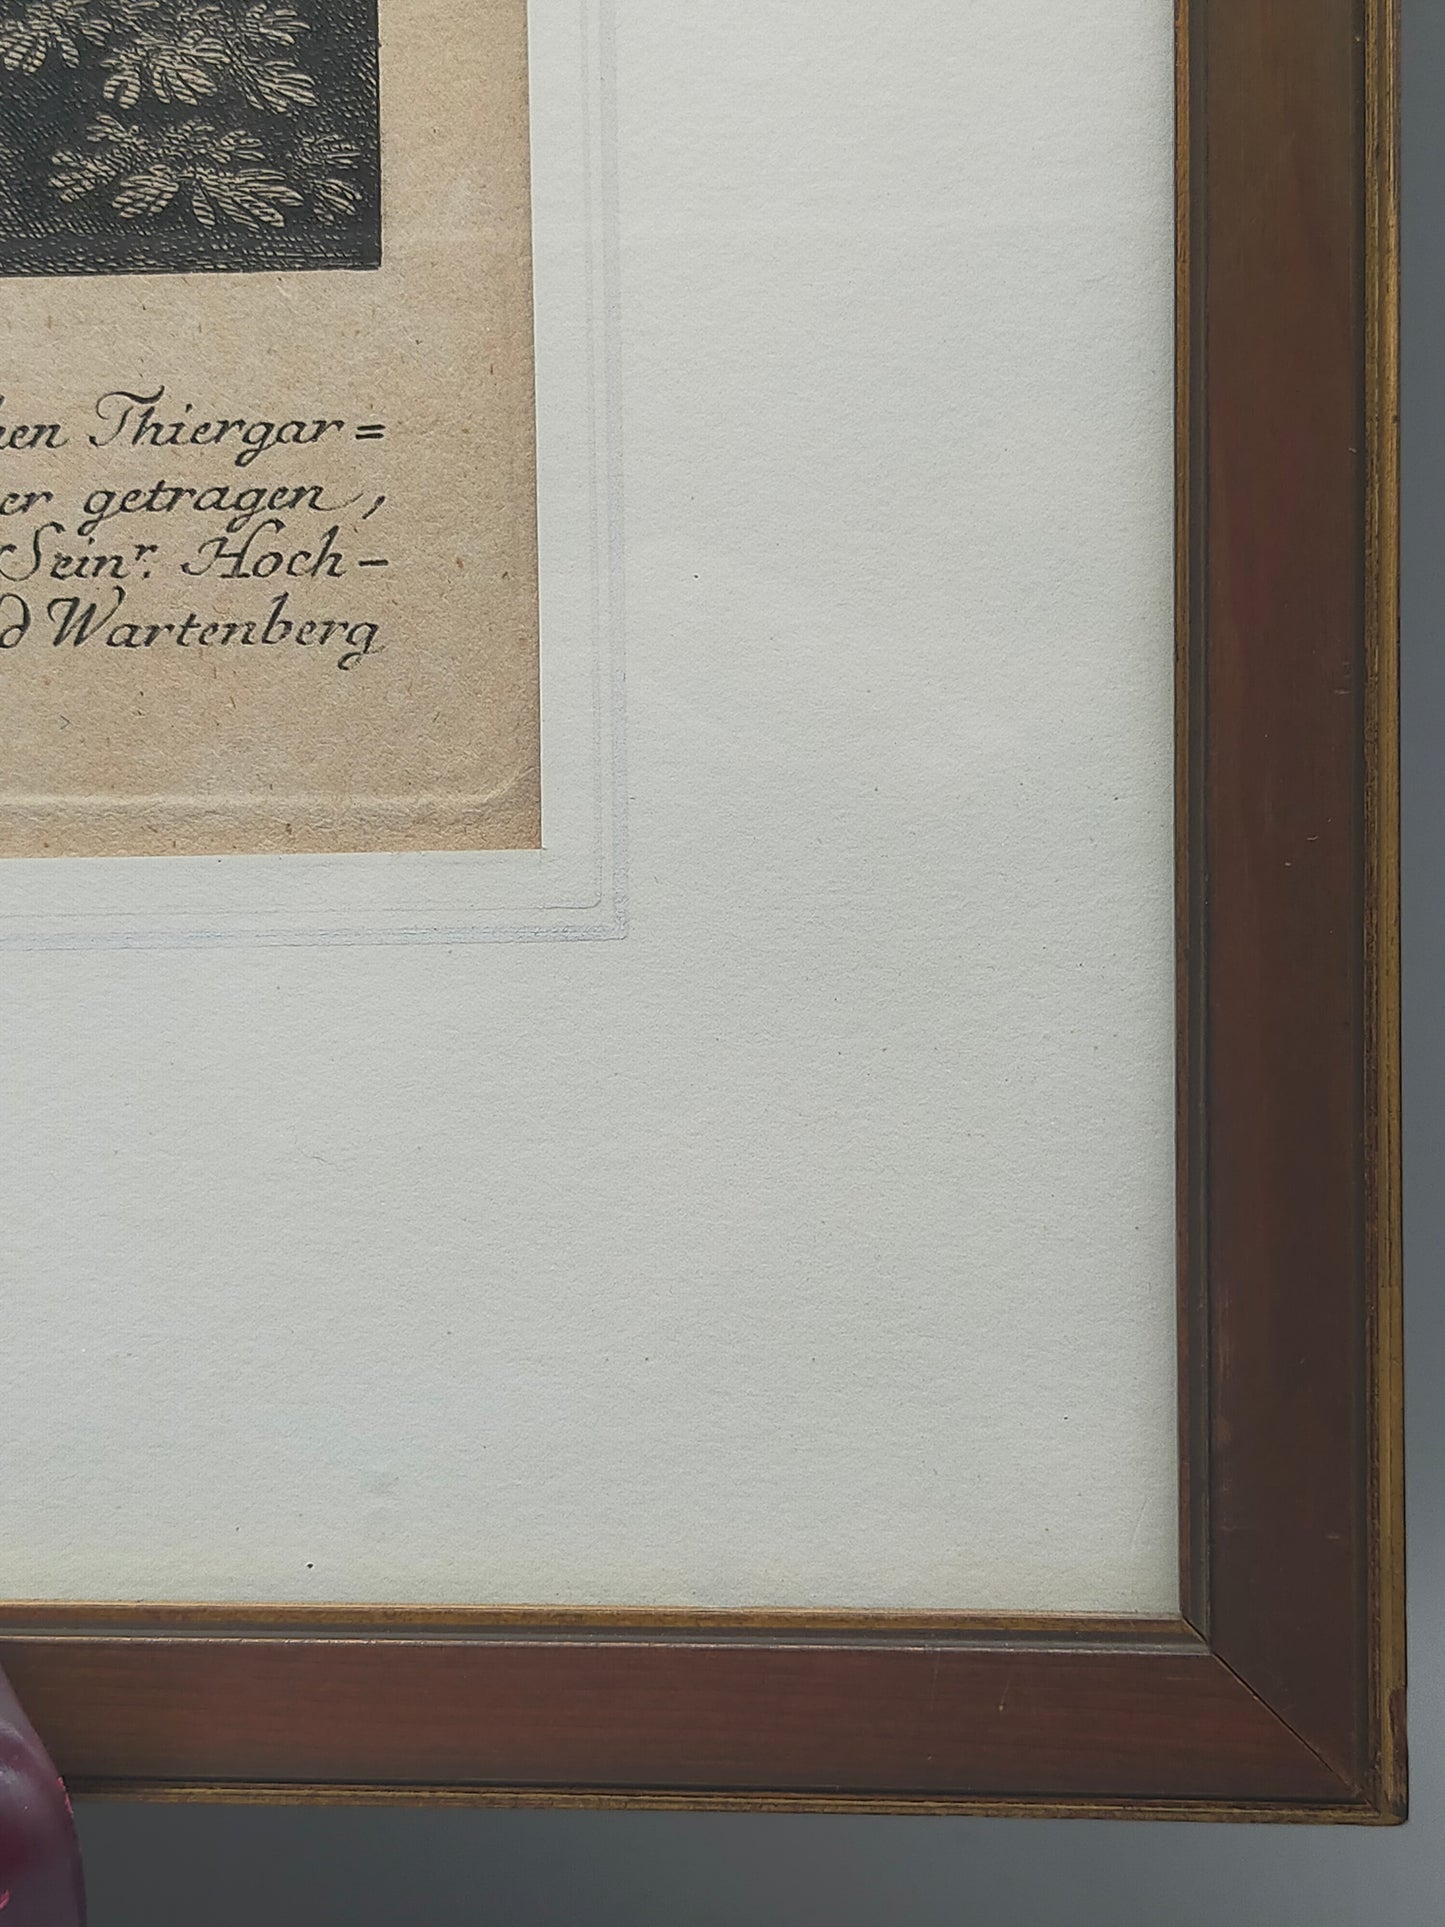 hen Thiergar=
er getragen,
Sein.r Hoch-
d Wartenberg